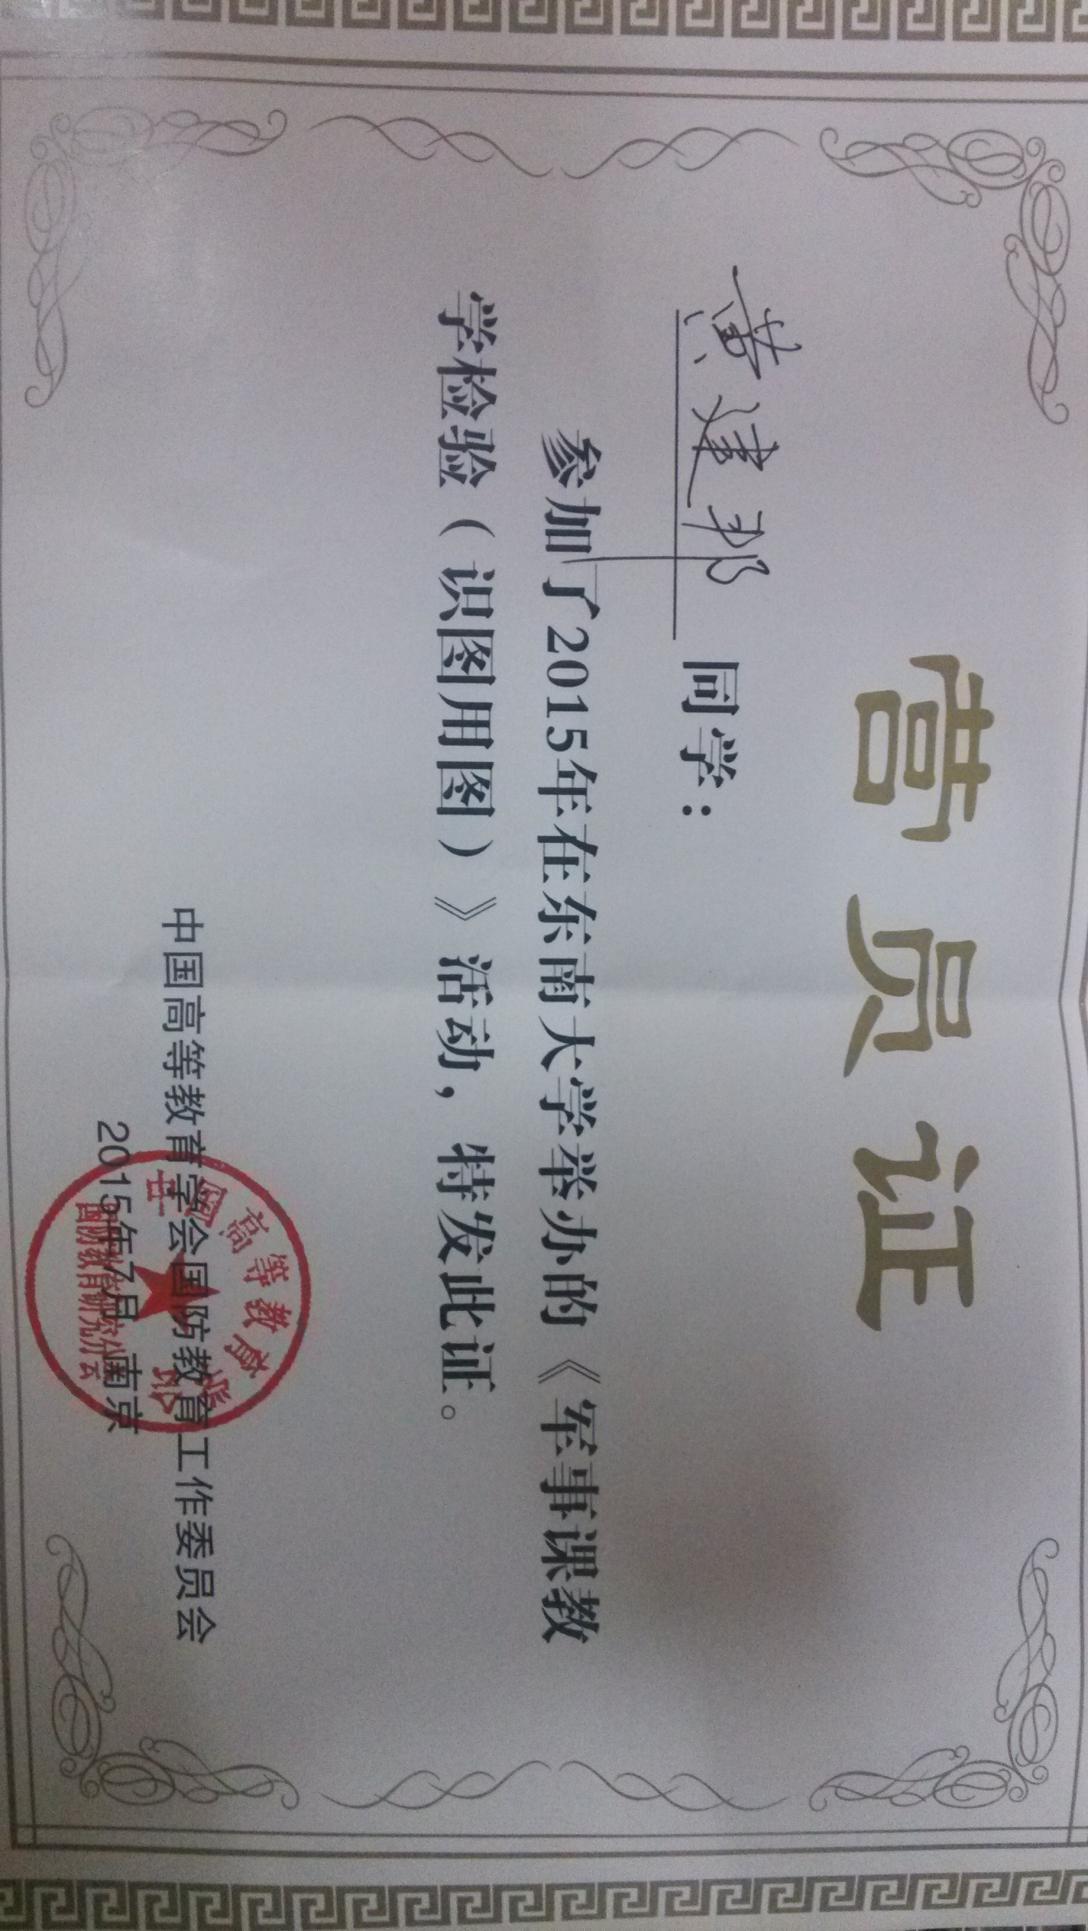 营员证
黄建邦 同学：
参加了2015年在东南大学举办的《军事课教
学检验（识图用图）》活动，特发此证。
中国高等教育学会国防教育工作委员会
2015年7月 南京
中国高等教育学会
国防教育研究分会